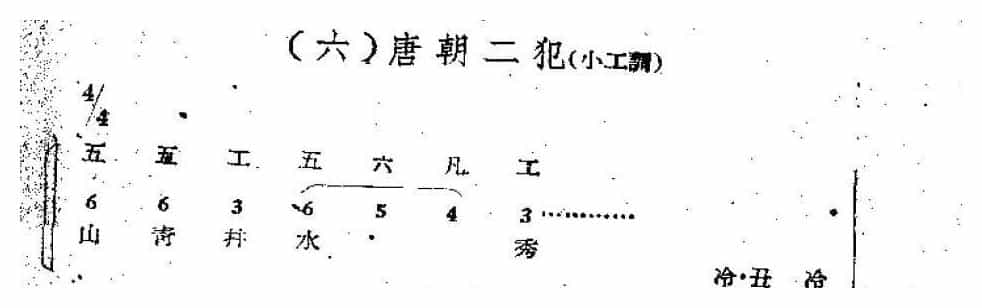 (六)唐朝二犯(小工調)
4/4
五 五 工 五 六 凡 工
6 6 3 6 5 4 3············
山 青 井 水 秀
冷·丑 冷